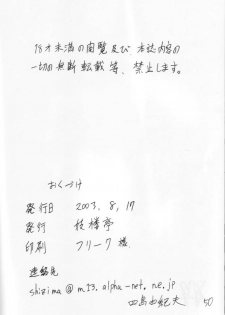 18才未満の閲覧及び本誌内容の
一切の無断転載等、禁止します。
おくづけ
発行日 2003.8.17
発行 伎楼亭
印刷 フリーク様
連絡先
shizima@m13.alpha-net.ne.jp
四島由紀夫
50